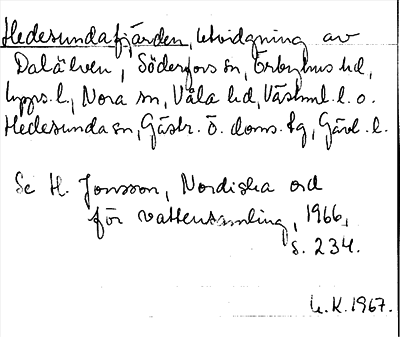 Hedesundafjärden, utvidgning av
Dalälven, Söderfors sn, Örbyhus hd,
Upps. l., Nora sn, Våla hd, Västml. l. o.
Hedesunda sn, Gästr. ö. doms. tg, Gävl. l.
Se H. Jonsson, Nordiska ord
för vattensamling, 1966,
s. 234.
U.K. 1967.